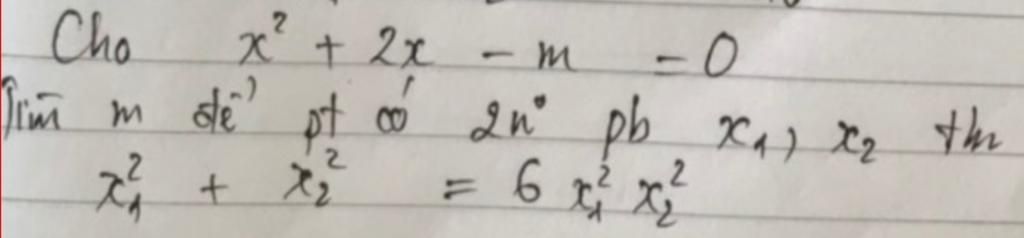 Cho x² + 2x - m = 0
Tìm m để pt có 2n° pb x₁, x₂ tm
x₁² + x₂² = 6 x₁² x₂²